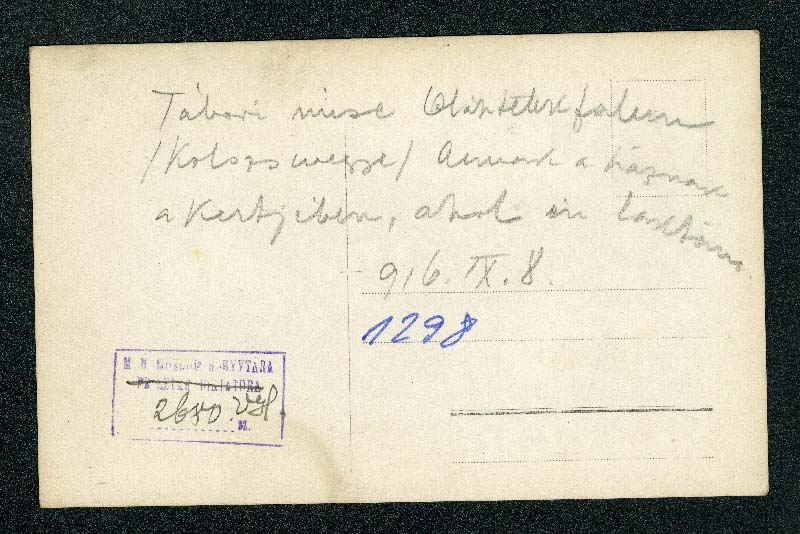 Tábori mise Oláhtelekfalun
/Kolozs megye/ Annak a háznak
a kertjében, ahol én laktam.
916. IX. 8.
1298
M. N. MUZEUM KÖNYVTÁRA
2680.
SZ.